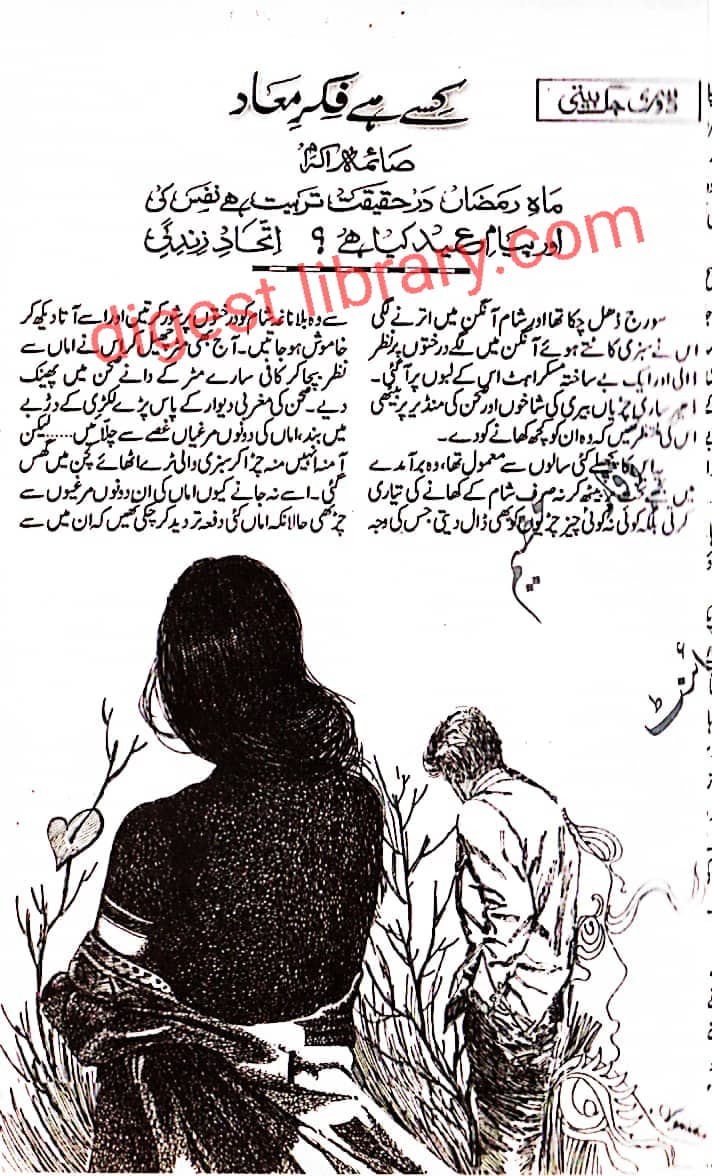 کسے ہے فکرِ معاد
صائمہ اکرم
ماہِ رمضاں درحقیقت تربیت ہے نفس کی
اور پیامِ عید کیا ہے؟ اتحادِ زندگی
سورج ڈھل چکا تھا اور شام آنگن میں اترنے لگی
اس نے سبزی کاٹتے ہوئے آنگن میں لگے درختوں پر نظر
ڈالی اور ایک بے ساختہ مسکراہٹ اس کے لبوں پر آگئی۔
ساری چڑیاں بیری کی شاخوں اور صحن کی منڈیر پر بیٹھی
اس کی منتظر تھیں کہ وہ ان کو کچھ کھانے کو دے۔
اس کا پچھلے کئی سالوں سے معمول تھا، وہ برآمدے
میں بچھے تخت پر بیٹھ کر نہ صرف شام کے کھانے کی تیاری
کرتی بلکہ کوئی نہ کوئی چیز چڑیوں کو بھی ڈال دیتی جس کی وجہ
سے وہ بلاناغہ شام کو درختوں پر شور کرتیں اور اسے آتا دیکھ کر
خاموش ہوجاتیں۔ آج بھی مٹر چھیل کر اس نے اماں سے
نظر بچا کر کافی سارے مٹر کے دانے صحن میں پھینک
دیے۔ صحن کی مغربی دیوار کے پاس پڑے لکڑی کے دڑبے
میں بند، اماں کی دونوں مرغیاں غصے سے چلائیں ...... لیکن
آمنہ انہیں منہ چڑا کر سبزی والی ٹرے اٹھائے کچن میں گھس
گئی۔ اسے نہ جانے کیوں اماں کی ان دونوں مرغیوں سے
چڑ تھی حالانکہ اماں کئی دفعہ تردید کرچکی تھیں کہ ان میں سے
digest library.com